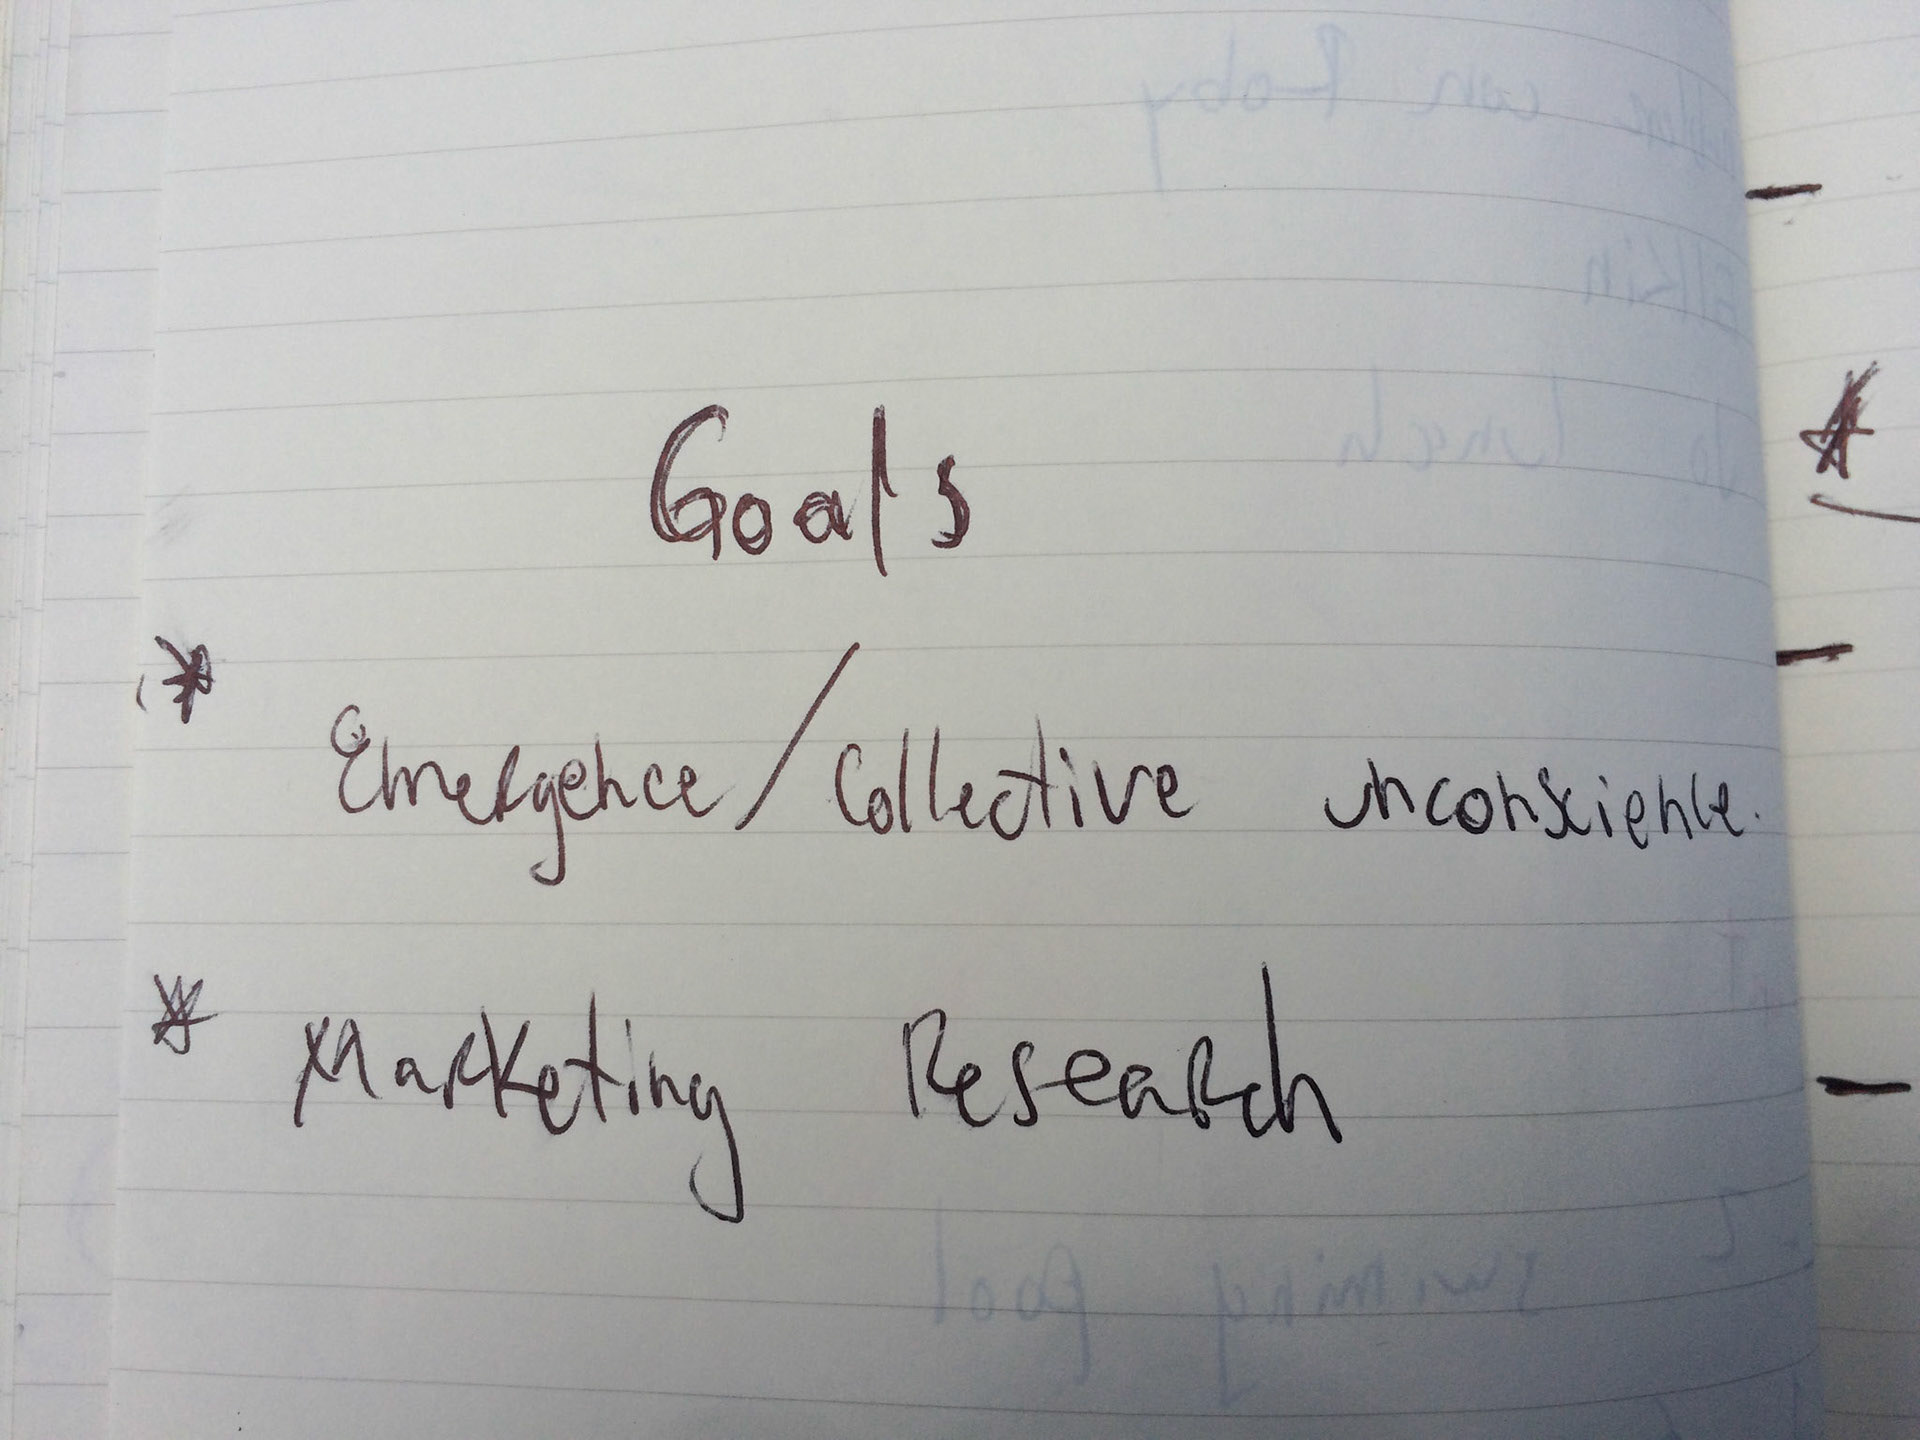 Goals
* Emergence/Collective unconscience.
* Marketing Research